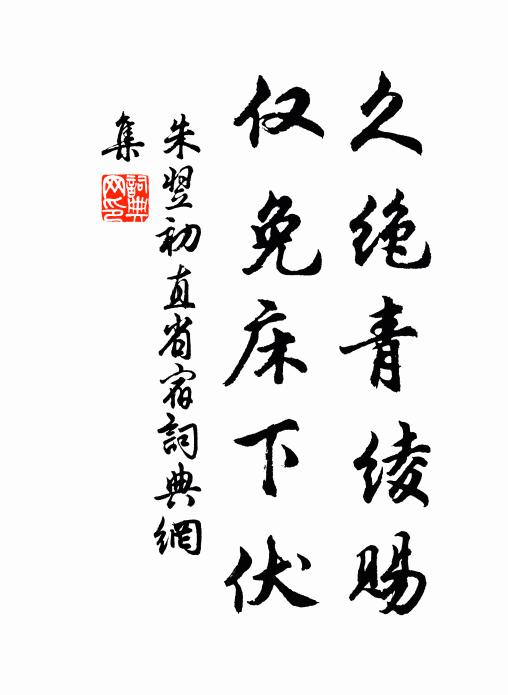 久绝青绫赐
仅免床下伏
朱翌初直省宿詞典網
集
詞典
网印